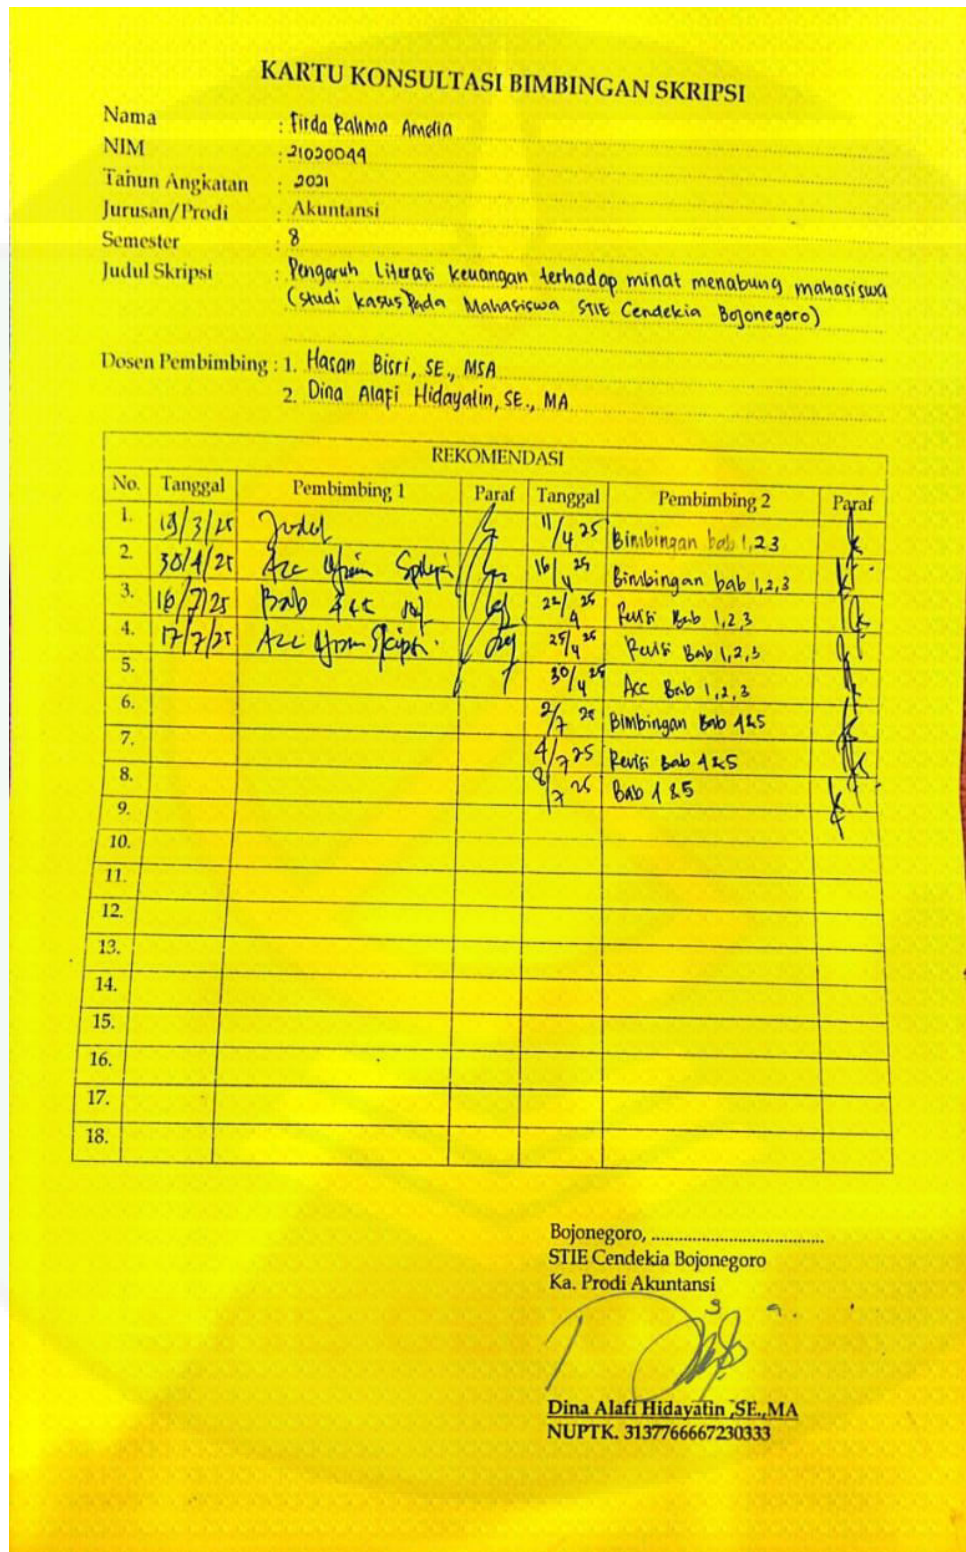 KARTU KONSULTASI BIMBINGAN SKRIPSI
Nama : Firda Rahma Amelia
NIM : 21020044
Tahun Angkatan : 2021
Jurusan/Prodi : Akuntansi
Semester : 8
Judul Skripsi : Pengaruh Literasi keuangan terhadap minat menabung mahasiswa
(Studi kasus Pada Mahasiswa STIE Cendekia Bojonegoro)
Dosen Pembimbing : 1. Hasan Bisri, SE., MSA
2. Dina Alafi Hidayatin, SE., MA
REKOMENDASI
No. Tanggal Pembimbing 1 Paraf Tanggal Pembimbing 2 Paraf
1. 19/3/25 Judul 11/4 25 Bimbingan bab 1,2 3
2. 30/4/25 Acc Ujian 16/4 25 Bimbingan bab 1,2,3
3. 16/7/25 Bab 4 & 5 22/4 25 Revisi Bab 1,2,3
4. 17/7/25 Acc Ujian Skripsi. 25/4 25 Revisi Bab 1,2,3
5. 30/4 25 Acc Bab 1,2,3
6. 2/7 25 Bimbingan Bab 4&5
7. 4/7 25 Revisi Bab 4&5
8. 8/7 25 Bab 4 &5
9.
10.
11.
12.
13.
14.
15.
16.
17.
18.
Bojonegoro, ......................................
STIE Cendekia Bojonegoro
Ka. Prodi Akuntansi
Dina Alafi Hidayatin ,SE.,MA
NUPTK. 3137766667230333